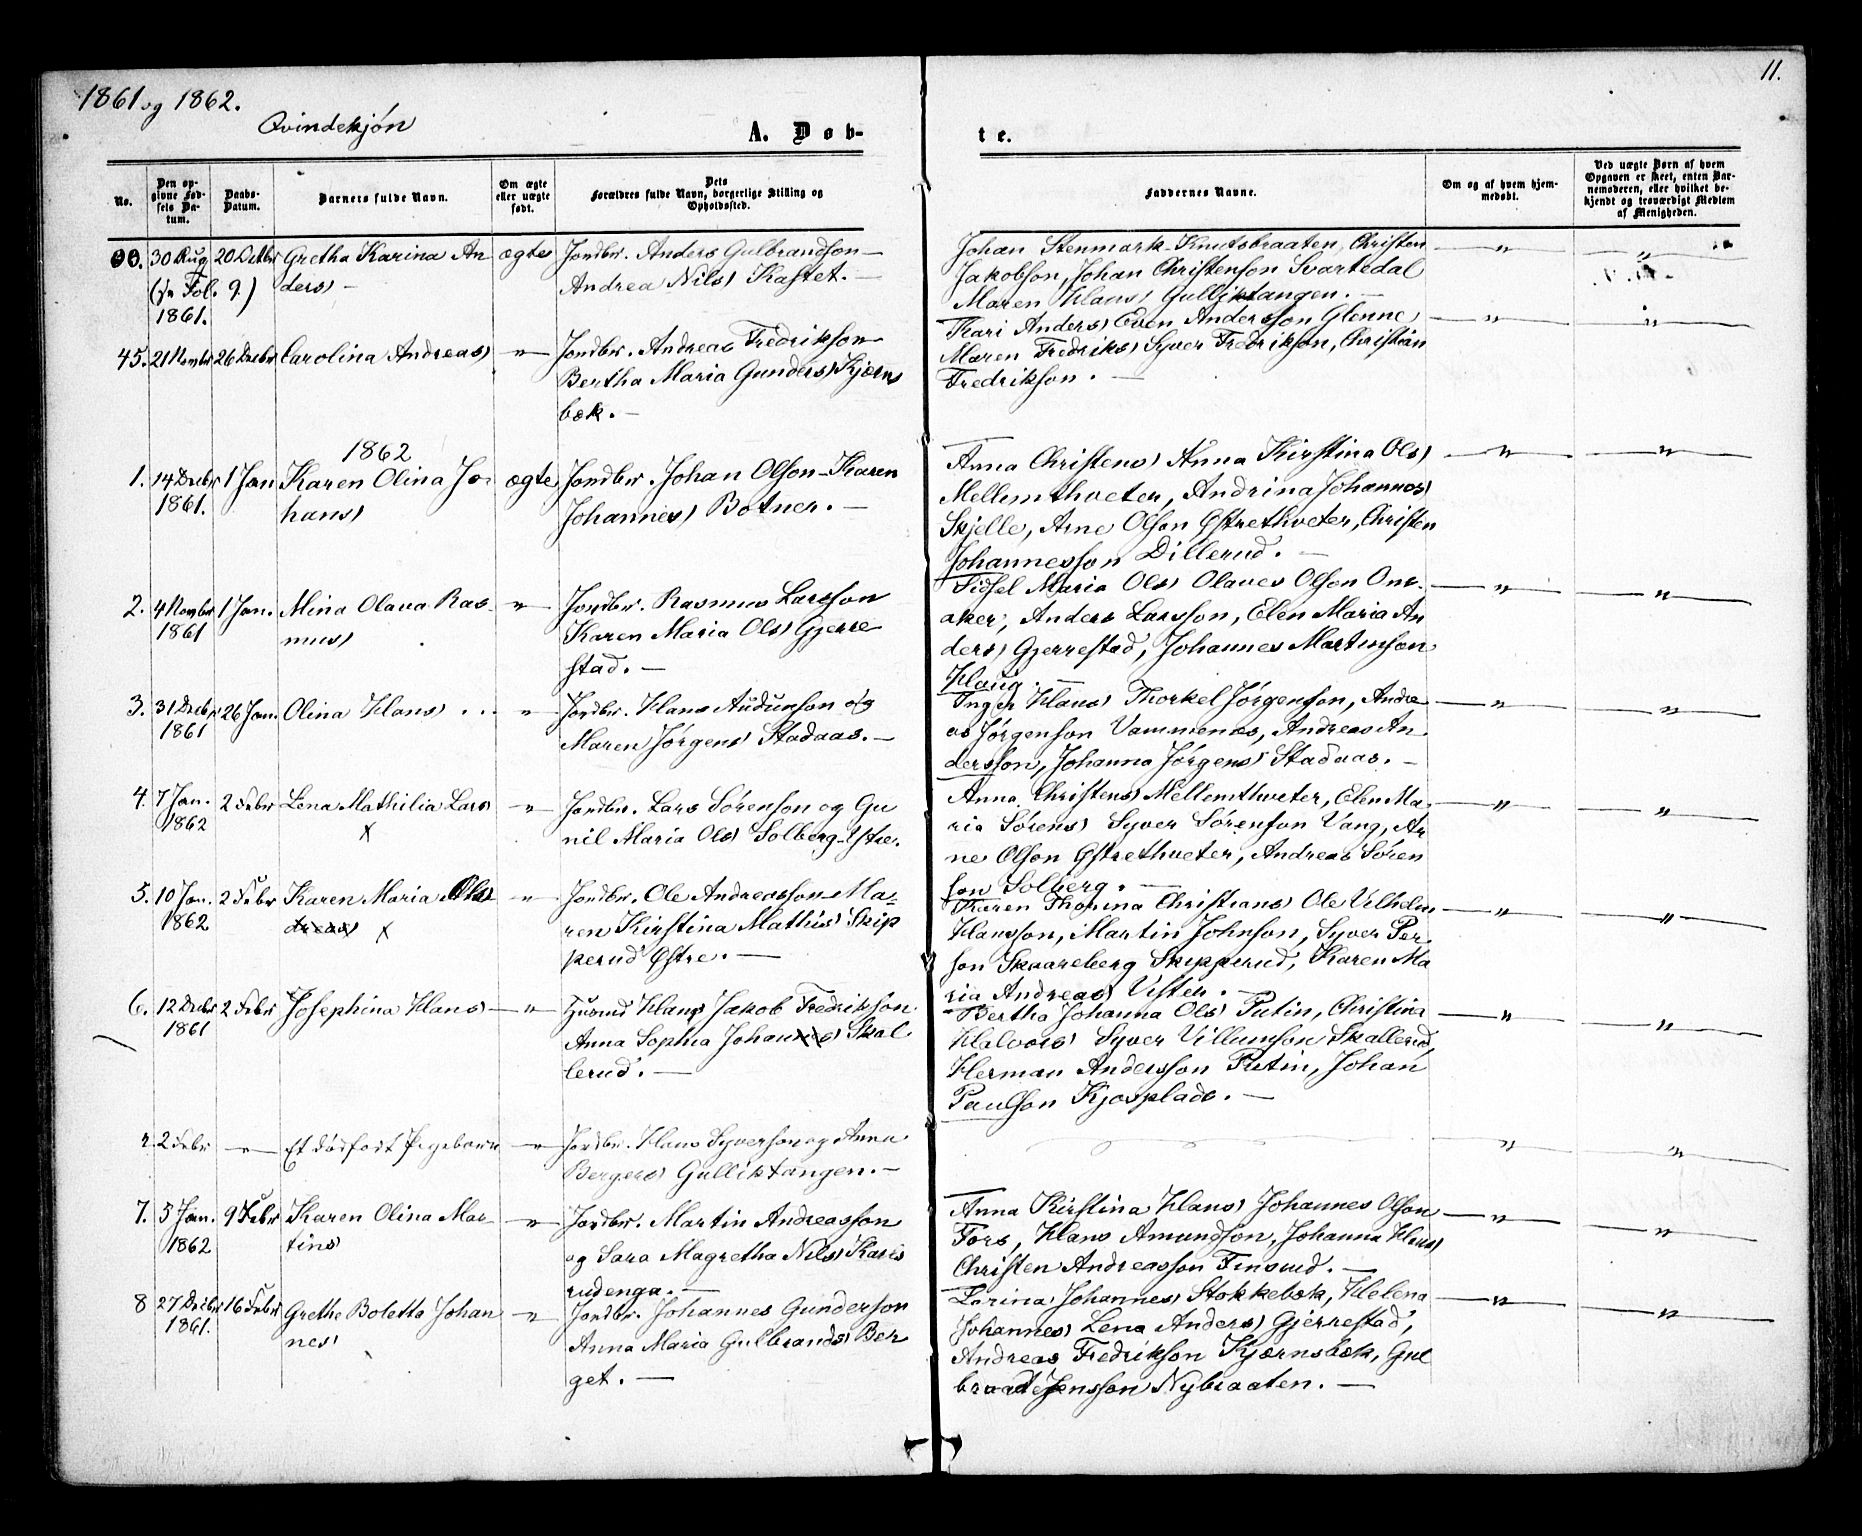 1861 og 1862.
11.
Qvindekjón
A. Døb-
te.
No.
Den op-
givne Fød-
sels Da-
tum.
Daabs-
Datum.
Barnets fulde Navn.
Om ægte
eller uægte
født.
Dets
Forældres fulde Navn, borgerlige Stilling og
Opholdssted.
Faddernes Navne.
Om og af hvem hjem-
medøbt.
Ved uægte Børn af hvem
Opgaven er skeet, enten Bar-
nemoderen, eller hvilket be-
kjendt og troværdigt Medlem
af Menigheden.
30 Aug 20 Octbr Gretha Karina An ægte Jordbr. Anders Gulbrandson —
(se Fol. 9.) ders — Andrea Nils Kastet. —
1861.
Johan Stenmark Knutsbraaten, Christen — „ — — „ —
Jakobson, Johan Christenson Svartedal
Maren Hans Gulliktangen. —
45. 21 Novmbr 26 Decbr Carolina Andreas — „ — Jordbr. Andreas Fredrikson
Bertha Maria Gunders Kjærns
bæk. —
Kari Anders Even Andersson Glenne — „ — — „ —
Maren Fredriks Syver Fredrikson, Christian
Fredrikson. —
1862
1. 14 Decbr 1 Jan Karen Olina Jo- ægte Jordbr. Johan Olson — Karen
1861. hans Johannes Botner. —
Anna Christens Anna Kirstina Ols — „ — — „ —
Mellemthveter, Andrina Johannes
Skjelle, Arne Olson Østrethveter, Christen
Johannesson Dillerud. —
2. 4 Novmbr 1 Jan. Mina Olava Ras- — „ — Jordbr. Rasmus Larsson
1861 mus Karen Maria Ols Gjerre
stad. —
Sidsel Maria Ols Olaves Olson Om- — „ — — „ —
aker, Anders Larsson, Elen Maria An
ders Gjerrestad, Johannes Martinson
Haug. —
3. 31 Decbr 26 Jan. Olina Hans . . . — „ — Jordbr. Hans Audunson og
1861 Maren Jørgens Stadaas. —
Inger Hans Thorkel Jørgenson, Andre — „ — — „ —
as Jørgenson Vammenæs, Andreas An
dersson, Johanna Jørgens Stadaas. —
4. 7 Jan. 2 Febr Lena Mathilia Lars — „ — Jordbr. Lars Sørenson og Gu
1862 x nil Maria Ols Solberg Østre.
Anna Christens Mellemthveter, Elen Ma- — „ — — „ —
ria Sørens Syver Sørenson Vang, Ar
ne Olson Østrethveter, Andreas Søren
son Solberg. —
5. 10 Jan. 2 Febr Karen Maria Ols — „ — Jordbr. Ole Andreasson Ma-
1862 dreas x ren Kirstina Mathis Skip
perud Østre. —
Karen Thonina Christians Ole Vilhelm — „ — — „ —
Hansson, Martin Johnson, Syver Per
son Skaareberg Skipperud, Karen Ma
ria Andreas Visten. —
6. 12 Decbr 2 Febr Josephina Hans — „ — Husmd Hans Jakob Fredrikson
1861 Anna Sophia Johannes Skal
lerud. —
Bertha Johanna Ols Putin, Christina — „ — — „ —
Halvors Syver Villumson Skallerud,
Herman Andersson Putin, Johan
Paulson Kjosplads. —
2 Febr — „ — Et dødfødt Pigebarn — „ — Jordbr. Hans Syverson og Anna
Bergers Gulliktangen. —
— „ — — „ —
7. 5 Jan. 9 Febr Karen Olina Mar — „ — Jordbr. Martin Andreasson
1862 tins og Sara Magretha Nils Karis
rudenga. —
Anna Kirstina Hans Johannes Olson — „ — — „ —
Fors, Hans Amundson, Johanna Hans
Christen Andreasson Finsrud. —
8 27 Decbr 16 Febr Grethe Boletta Johan — „ — Jordbr. Johannes Gunderson
1861. nes Anna Maria Gulbrands Ber
get. —
Larina Johannes Stokkebæk, Helena — „ — — „ —
Johannes Lena Anders Gjerrestad,
Andreas Fredrikson Kjærnsbæk, Gul
brand Jensson Nybraaten. —